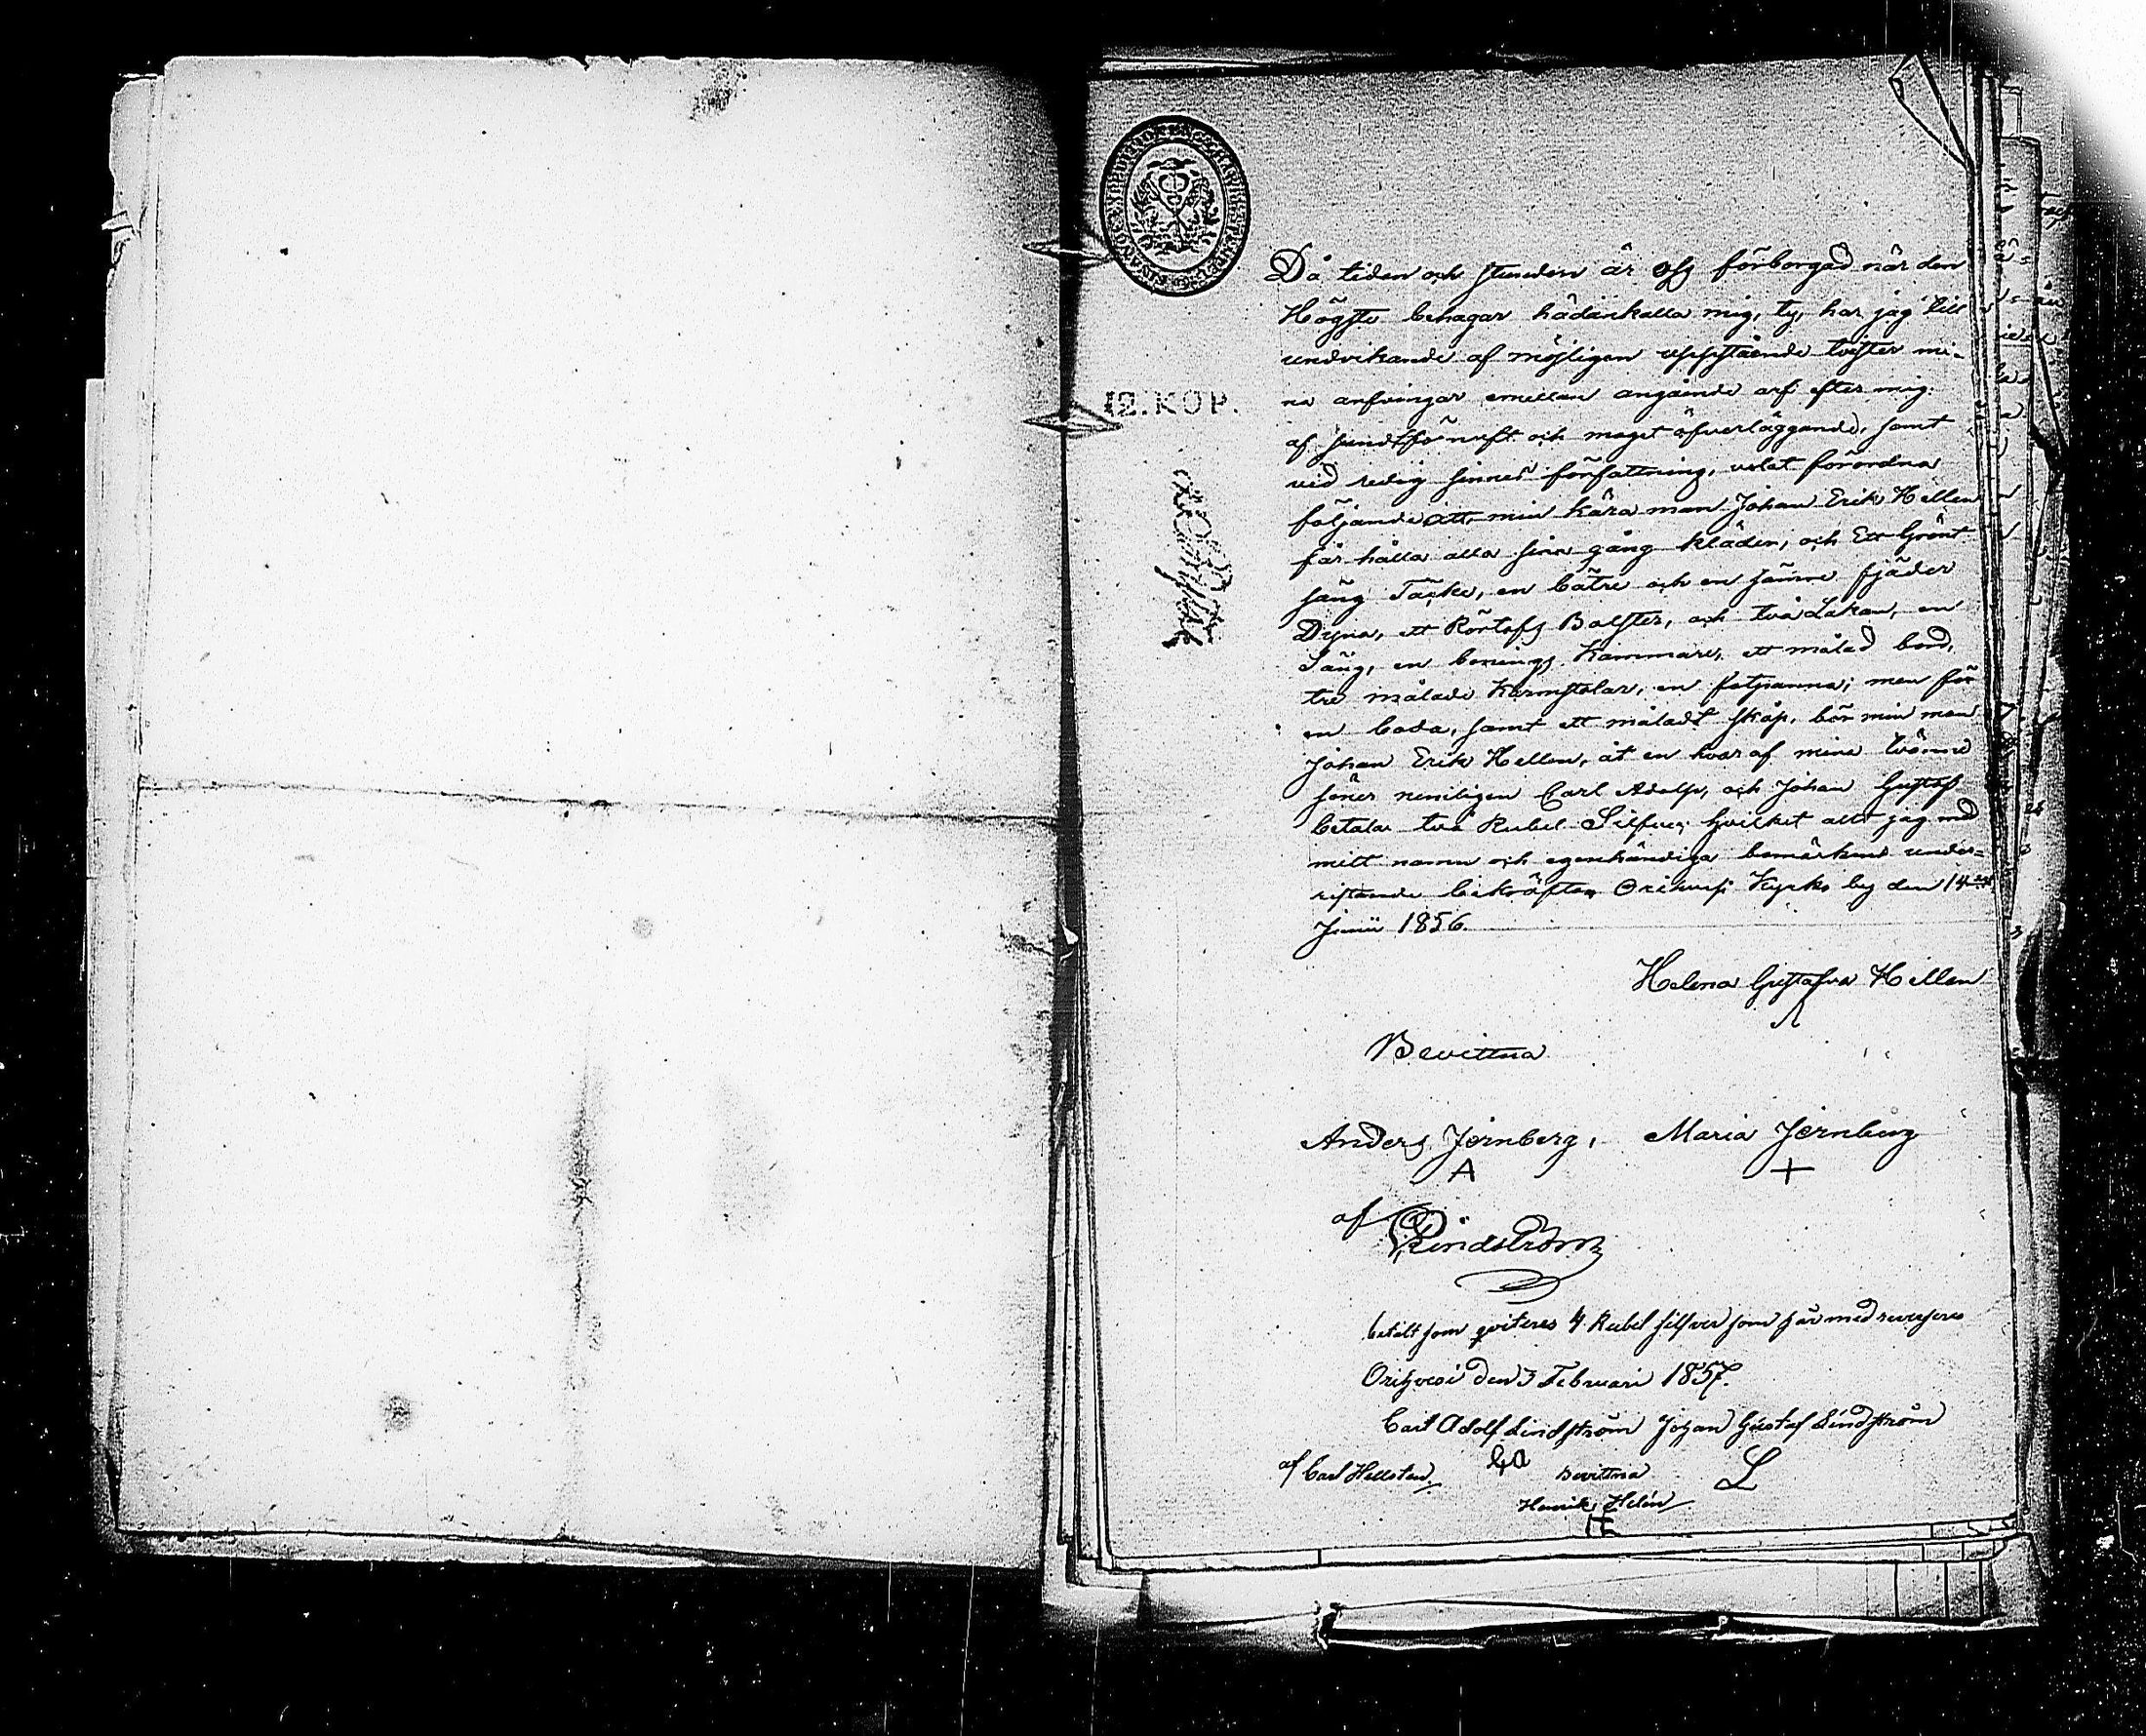 12. KOP.
Då tiden och stunden är oss förborgad när den
Högste behagar hädankalla mig, ty, har jag till
undvikande af möjligen uppstående tvister mi-
na arfvingar emellan angående arf efter mig.
af sundt förnuft och moget öfverläggande, samt
vid redig sinnes författning, velat förordna
följande att min kära man Johan Erik Hellen
får hålla alla sina gång kläder, och Ett Grönt
säng Täcke, en bätre och en sämre fjäder
Dyna, ett Bolster, och två Lakan, en
Säng, en bonings Kammare, ett målad bord,
tre målade Karmstolar, en fotpanna; men för
en boda, samt ett måladt skåp, bör min man
Johan Erik Hellen, åt en hvar af mina tvänne
söner nemligen Carl Adolf, och Johan Gustaf
betala två Rubel Silfver, hvilket allt jag med
mitt namn och egenhändiga bomärkens under-
ristande bekräftar Orihvesi Kyrko by den 14de
Junii 1856.
Helena Gustafva Hellen
Bevittna
Anders Jernberg, Maria Jernberg
A +
af
Lindström
betalt som qviteres 4 Rubel silfver som här med reverseres
Orihvesi den 3 Februari 1857.
Carl Adolf Lindström Johan Gustaf Lindström
af Carl Hellsten. Bevittna L
Henrik Helén